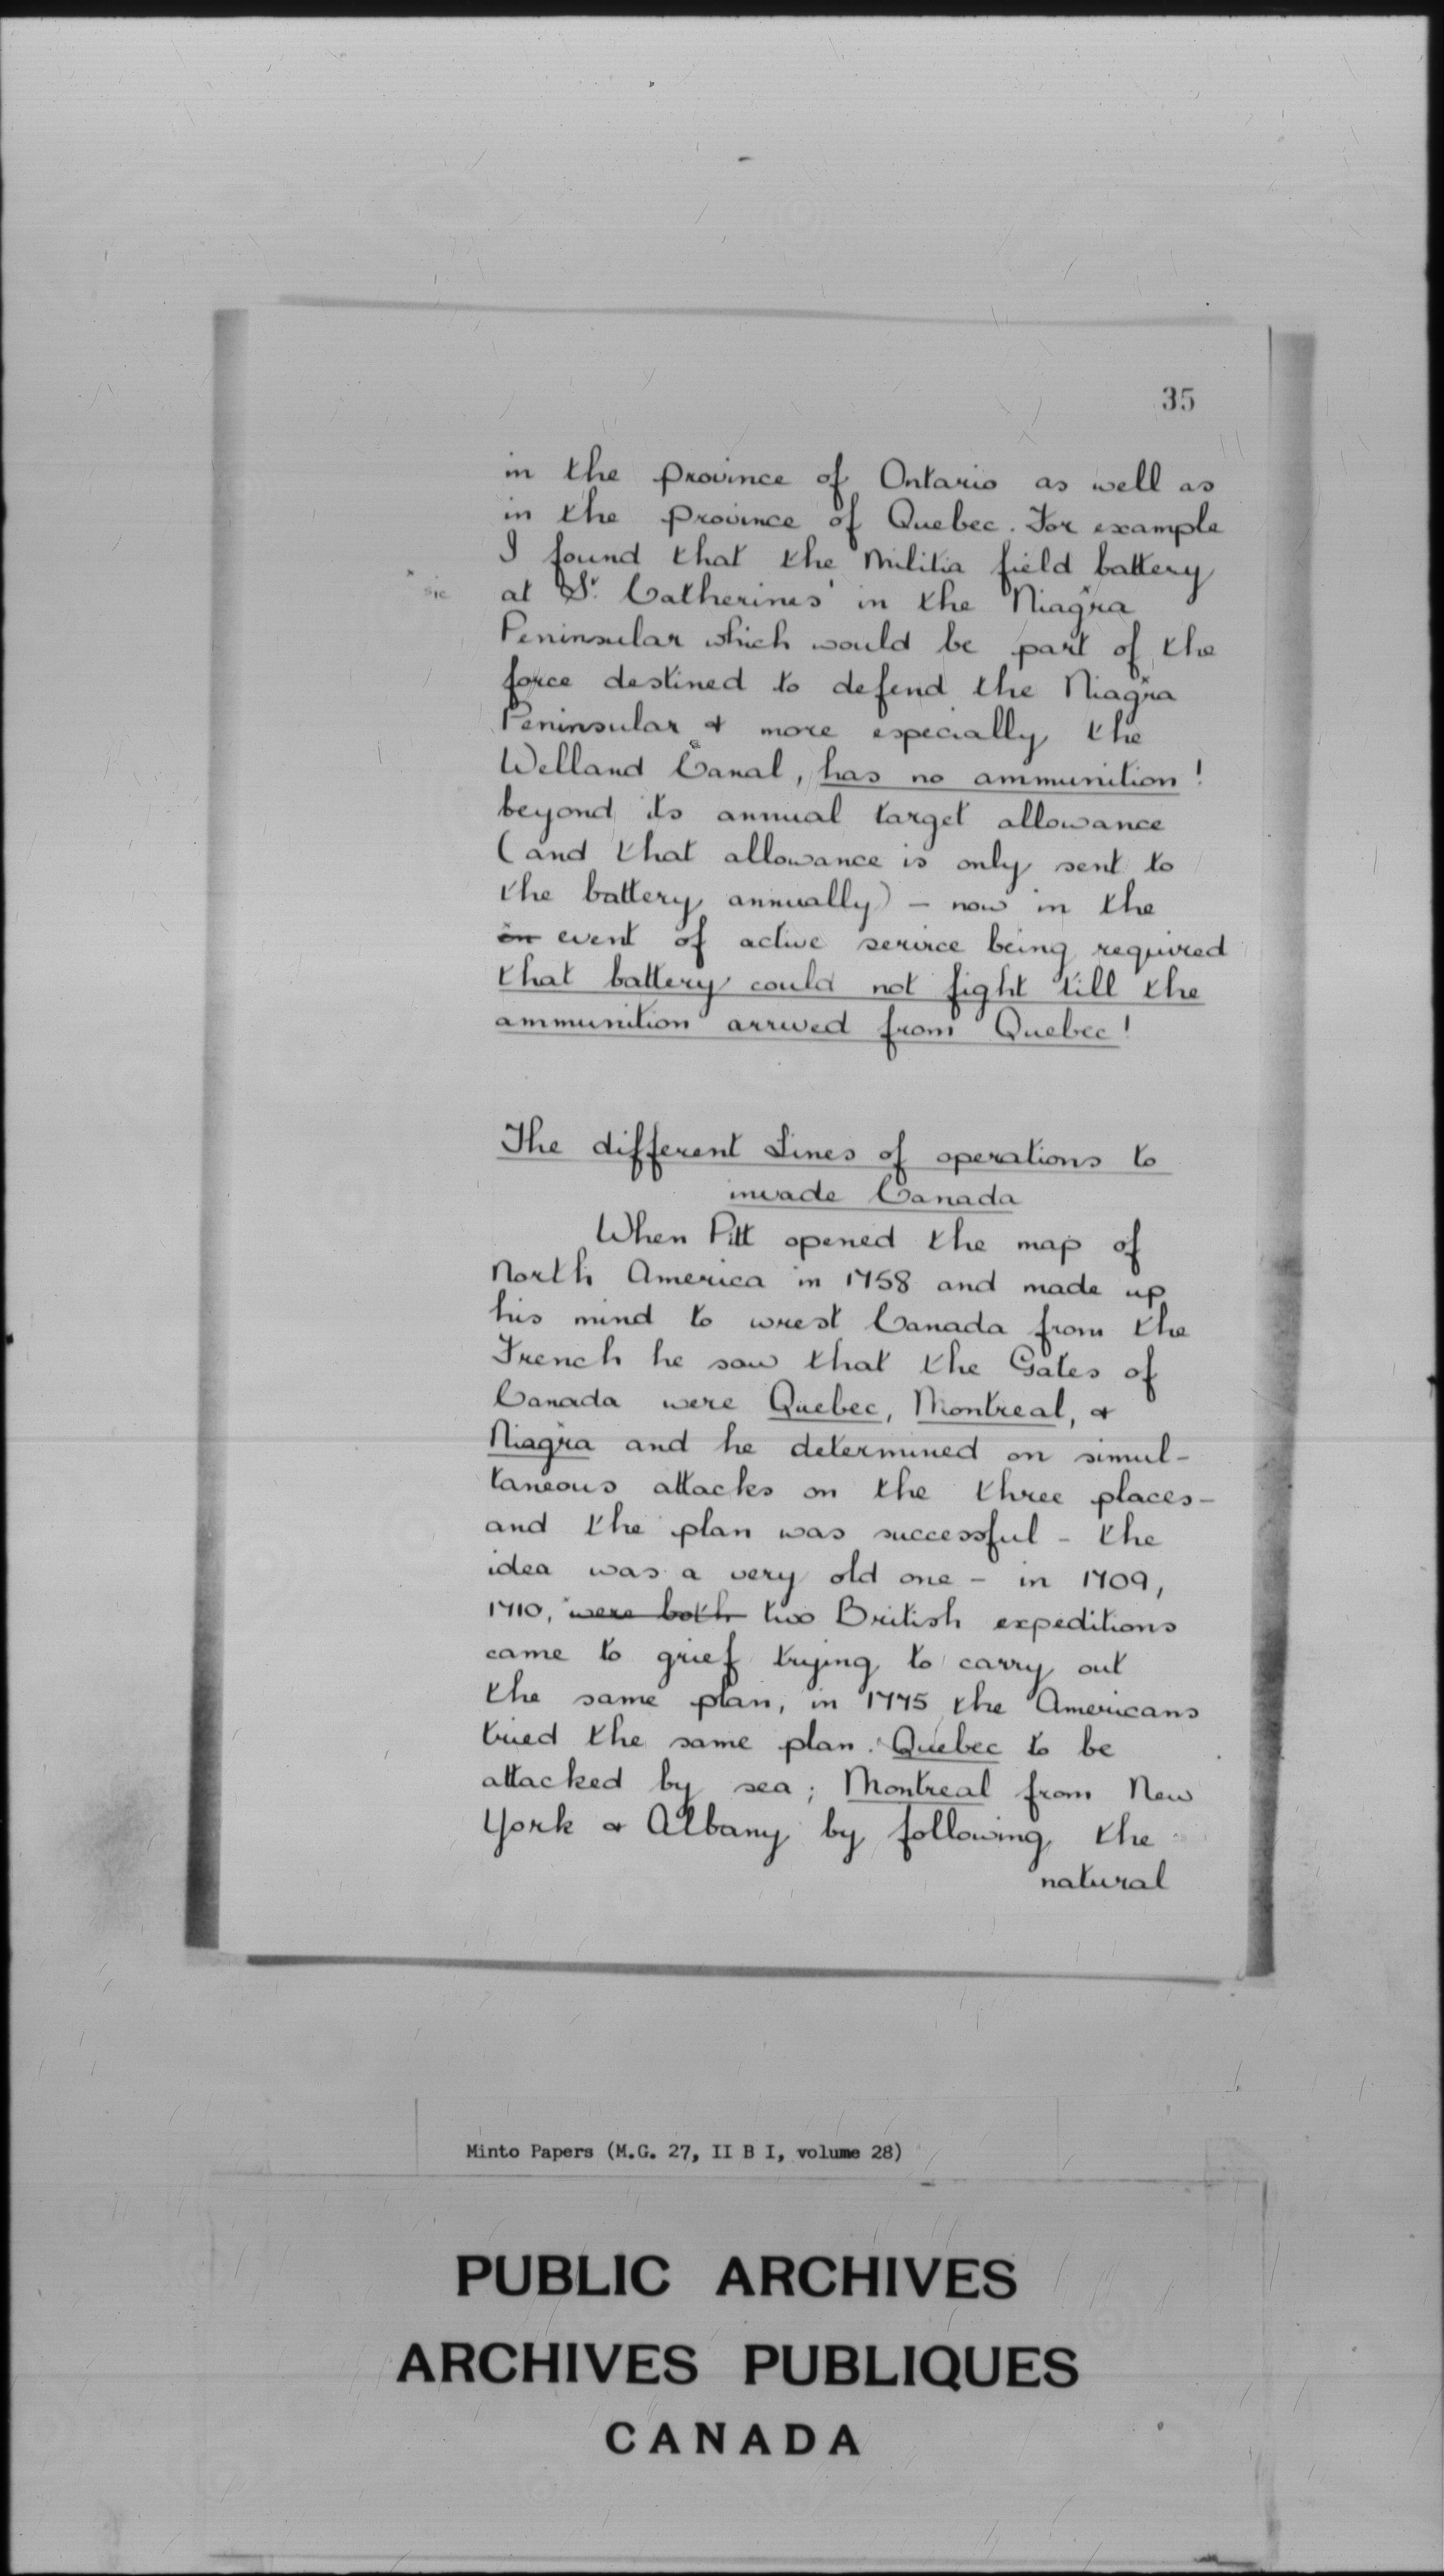 35
in the province of Ontario as well as
in the province of Quebec. For example
I found that the Militia field battery
* sic
at St. Catherines in the Niagra
Peninsular which would be part of the
force destined to defend the Niagra
Peninsular & more especially the
Welland Canal, has no ammunition!
beyond its annual target allowance
(and that allowance is only sent to
the battery annually) – now in the
in event of active service being required
that battery could not fight till the
ammunition arrived from Quebec!
The different Lines of operations to
invade Canada
When Pitt opened the map of
North America in 1758 and made up
his mind to wrest Canada from the
French he saw that the Gates of
Canada were Quebec, Montreal, &
Niagra and he determined on simul-
taneous attacks on the three places –
and the plan was successful – the
idea was a very old one – in 1709,
1710, were both two British expeditions
came to grief trying to carry out
the same plan, in 1775 the Americans
tried the same plan. Quebec to be
attacked by sea; Montreal from New
York & Albany by following the
natural
Minto Papers (M.G. 27, II B I, volume 28)
PUBLIC ARCHIVES
ARCHIVES PUBLIQUES
CANADA